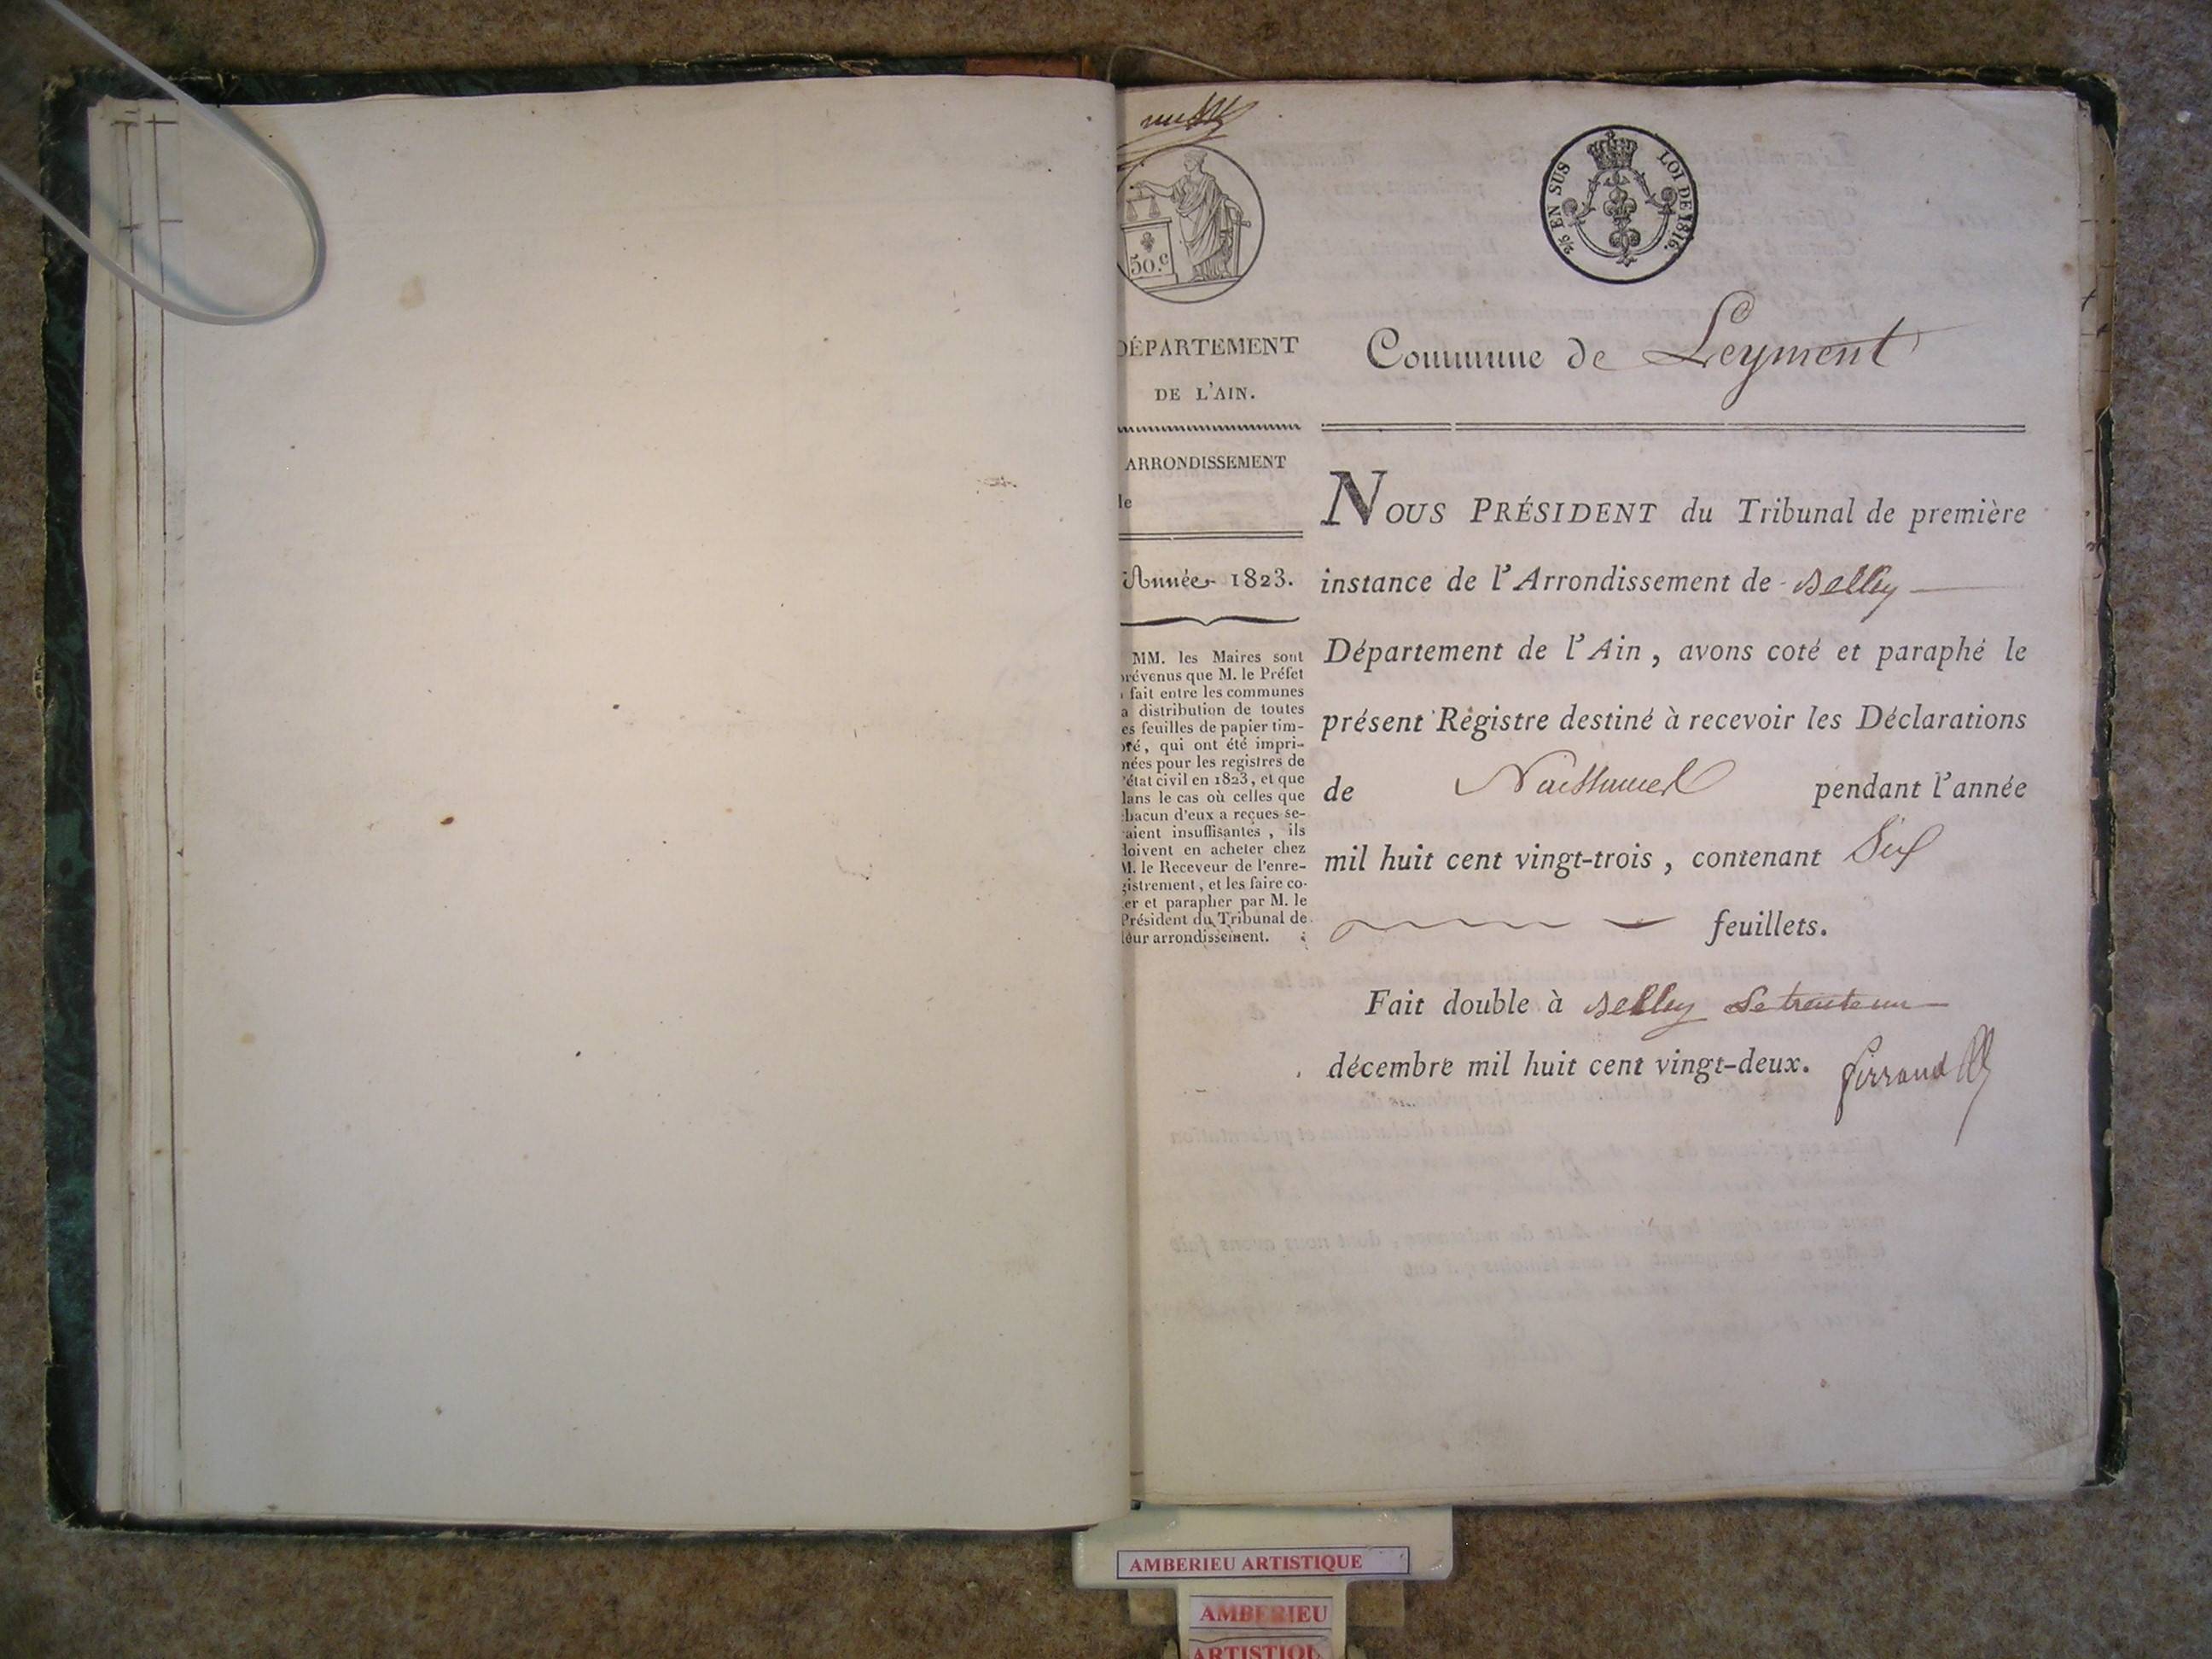 50.c
2/5 EN SUS LOI DE 1816.
DÉPARTEMENT
DE L'AIN.
ARRONDISSEMENT
de
Année 1823.
MM. les Maires sont
prévenus que M. le Préfet
a fait entre les communes
la distribution de toutes
les feuilles de papier tim-
bré, qui ont été impri-
mées pour les registres de
l'état civil en 1823, et que
dans le cas où celles que
chacun d'eux a reçues se-
raient insuffisantes, ils
doivent en acheter chez
M. le Receveur de l'enre-
gistrement, et les faire co-
ter et parapher par M. le
Président du Tribunal de
leur arrondissement.
Commune de Leyment
NOUS PRÉSIDENT du Tribunal de première
instance de l'Arrondissement de Belley
Département de l'Ain, avons coté et paraphé le
présent Registre destiné à recevoir les Déclarations
de Naissances pendant l'année
mil huit cent vingt-trois, contenant Six
feuillets.
Fait double à Belley Le trente un
décembre mil huit cent vingt-deux.
AMBERIEU ARTISTIQUE
AMBERIEU
ARTISTIQU